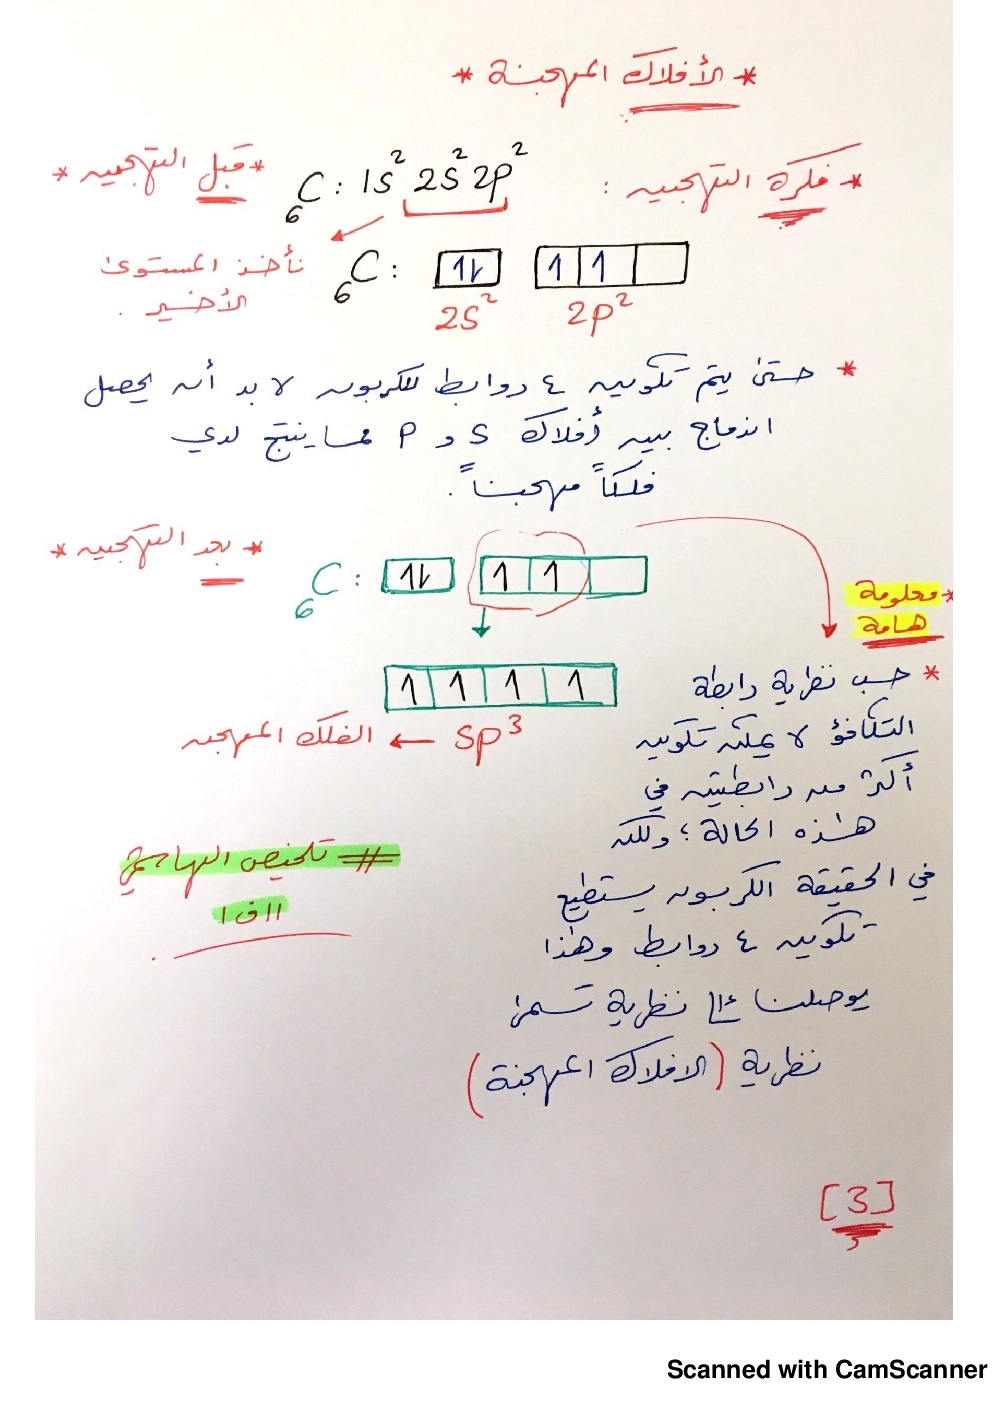 * الأفلاك المهجنة *
* فكرة التهجين :
₆C : 1S² 2S² 2p²
* قبل التهجين *
نأخذ المستوى
الأخير .
₆C : 1↿⇂ 1 1
2S² 2p²
* حتى يتم تكوين ٤ روابط للكربون لا بد أن يحصل
اندماج بين أفلاك S و P مما ينتج لدي
فلكاً مهجناً .
* بعد التهجين *
₆C : 1⇂ 1 1
1 1 1 1
sp³ ← الفلك المهجن
* معلومة
هامة
* حسب نظرية رابطة
التكافؤ لا يمكن تكوين
أكثر من رابطتين في
هذه الحالة ؛ ولكن
في الحقيقة الكربون يستطيع
تكوين ٤ روابط وهذا
يوصلنا إلى نظرية تسمى
نظرية (الافلاك المهجنة)
# تلخيص
١١ف١
[3]
Scanned with CamScanner